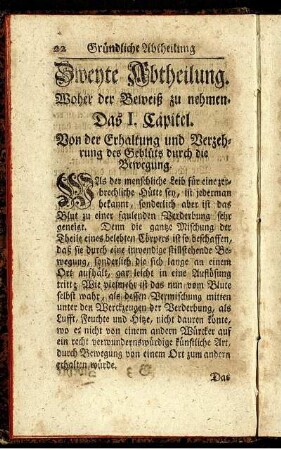 22 Gründliche Abtheilung
Zweyte Abtheilung.
Woher der Beweiß zu nehmen.
Das I. Capitel.
Von der Erhaltung und Verzeh-
rung des Geblüts durch die
Bewegung.
WAs der menschliche Leib für eine zer-
brechliche Hütte sey, ist jederman
bekannt, sonderlich aber ist das
Blut zu einer faulenden Verderbung sehr
geneigt. Denn die gantze Mischung der
Theile eines belebten Cörpers ist so beschaffen,
daß sie durch eine inwendige stillstehende Be-
wegung, sonderlich die sich lange an einem
Ort aufhält, gar leicht in eine Auflösung
tritt; Wie vielmehr ist das nun vom Blute
selbst wahr, als dessen Vermischung mitten
unter den Werckzeugen der Verderbung, als
Lufft, Feuchte und Hitze, nicht dauren könte,
wo es nicht von einem andern Würcker auf
ein recht verwundernswürdige künstliche Art,
durch Bewegung von einem Ort zum andern
erhalten würde.
Das